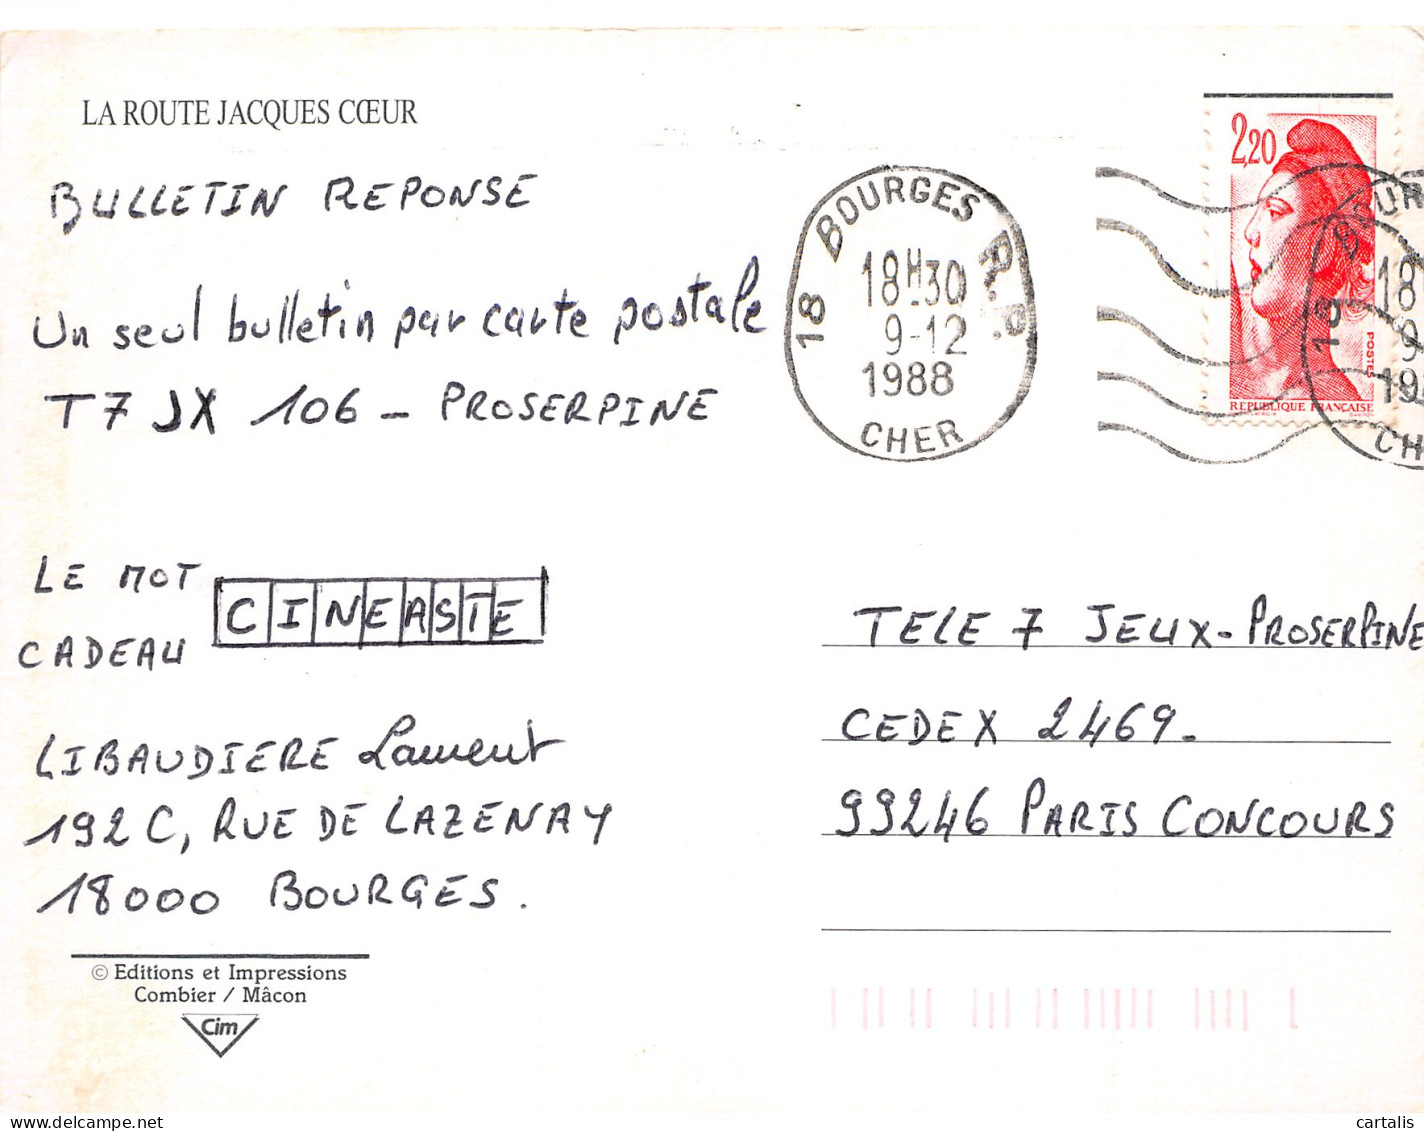 LA ROUTE JACQUES CŒUR
BULLETIN REPONSE
Un seul bulletin par carte postale
T7 JX 106 - PROSERPINE
LE MOT
CADEAU
CINEASTE
LIBAUDIERE Laurent
192 C, RUE DE LAZENAY
18000 BOURGES.
© Editions et Impressions
Combier / Mâcon
Cim
18 BOURGES R.P.
18H30
9-12
1988
CHER
2,20
POSTES
REPUBLIQUE FRANÇAISE
18 BOUR
18
9
19
CH
TELE 7 JEUX-PROSERPINE
CEDEX 2469-
99246 PARIS CONCOURS
www.cartalis.com